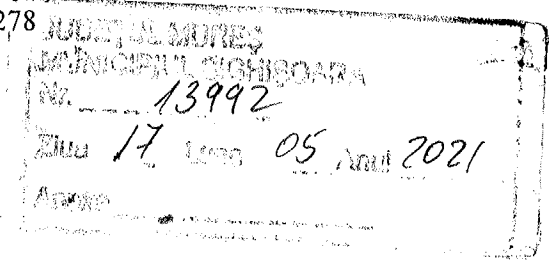 278
JUDEȚUL MUREȘ
MUNICIPIUL SIGHIȘOARA
Nr. 13992
Ziua 17 Luna 05 Anul 2021
Anexe